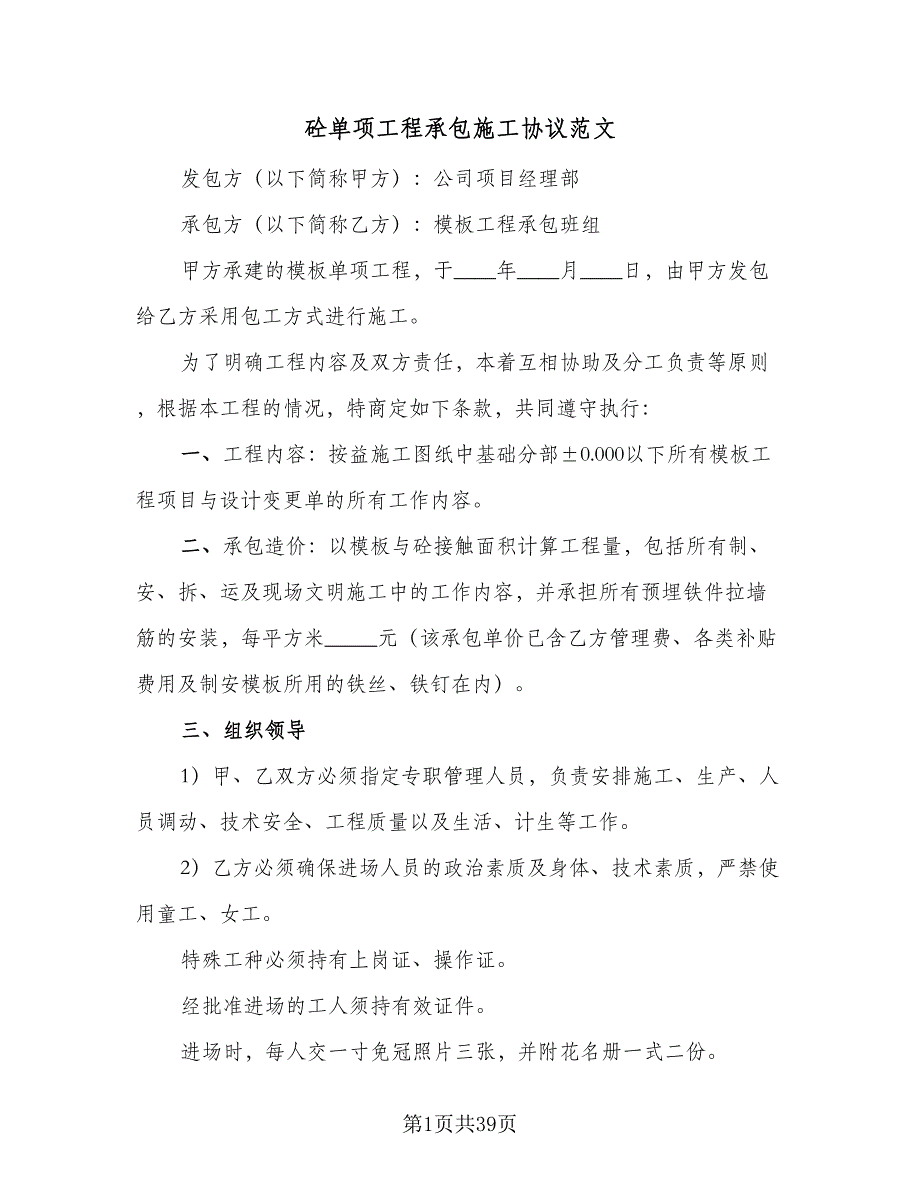 砼单项工程承包施工协议范文
发包方（以下简称甲方）：公司项目经理部
承包方（以下简称乙方）：模板工程承包班组
甲方承建的模板单项工程，于____年____月____日，由甲方发包
给乙方采用包工方式进行施工。
为了明确工程内容及双方责任，本着互相协助及分工负责等原则
，根据本工程的情况，特商定如下条款，共同遵守执行：
一、工程内容：按益施工图纸中基础分部±0.000以下所有模板工
程项目与设计变更单的所有工作内容。
二、承包造价：以模板与砼接触面积计算工程量，包括所有制、
安、拆、运及现场文明施工中的工作内容，并承担所有预埋铁件拉墙
筋的安装，每平方米_____元（该承包单价已含乙方管理费、各类补贴
费用及制安模板所用的铁丝、铁钉在内）。
三、组织领导
1）甲、乙双方必须指定专职管理人员，负责安排施工、生产、人
员调动、技术安全、工程质量以及生活、计生等工作。
2）乙方必须确保进场人员的政治素质及身体、技术素质，严禁使
用童工、女工。
特殊工种必须持有上岗证、操作证。
经批准进场的工人须持有效证件。
进场时，每人交一寸免冠照片三张，并附花名册一式二份。
第1页共39页